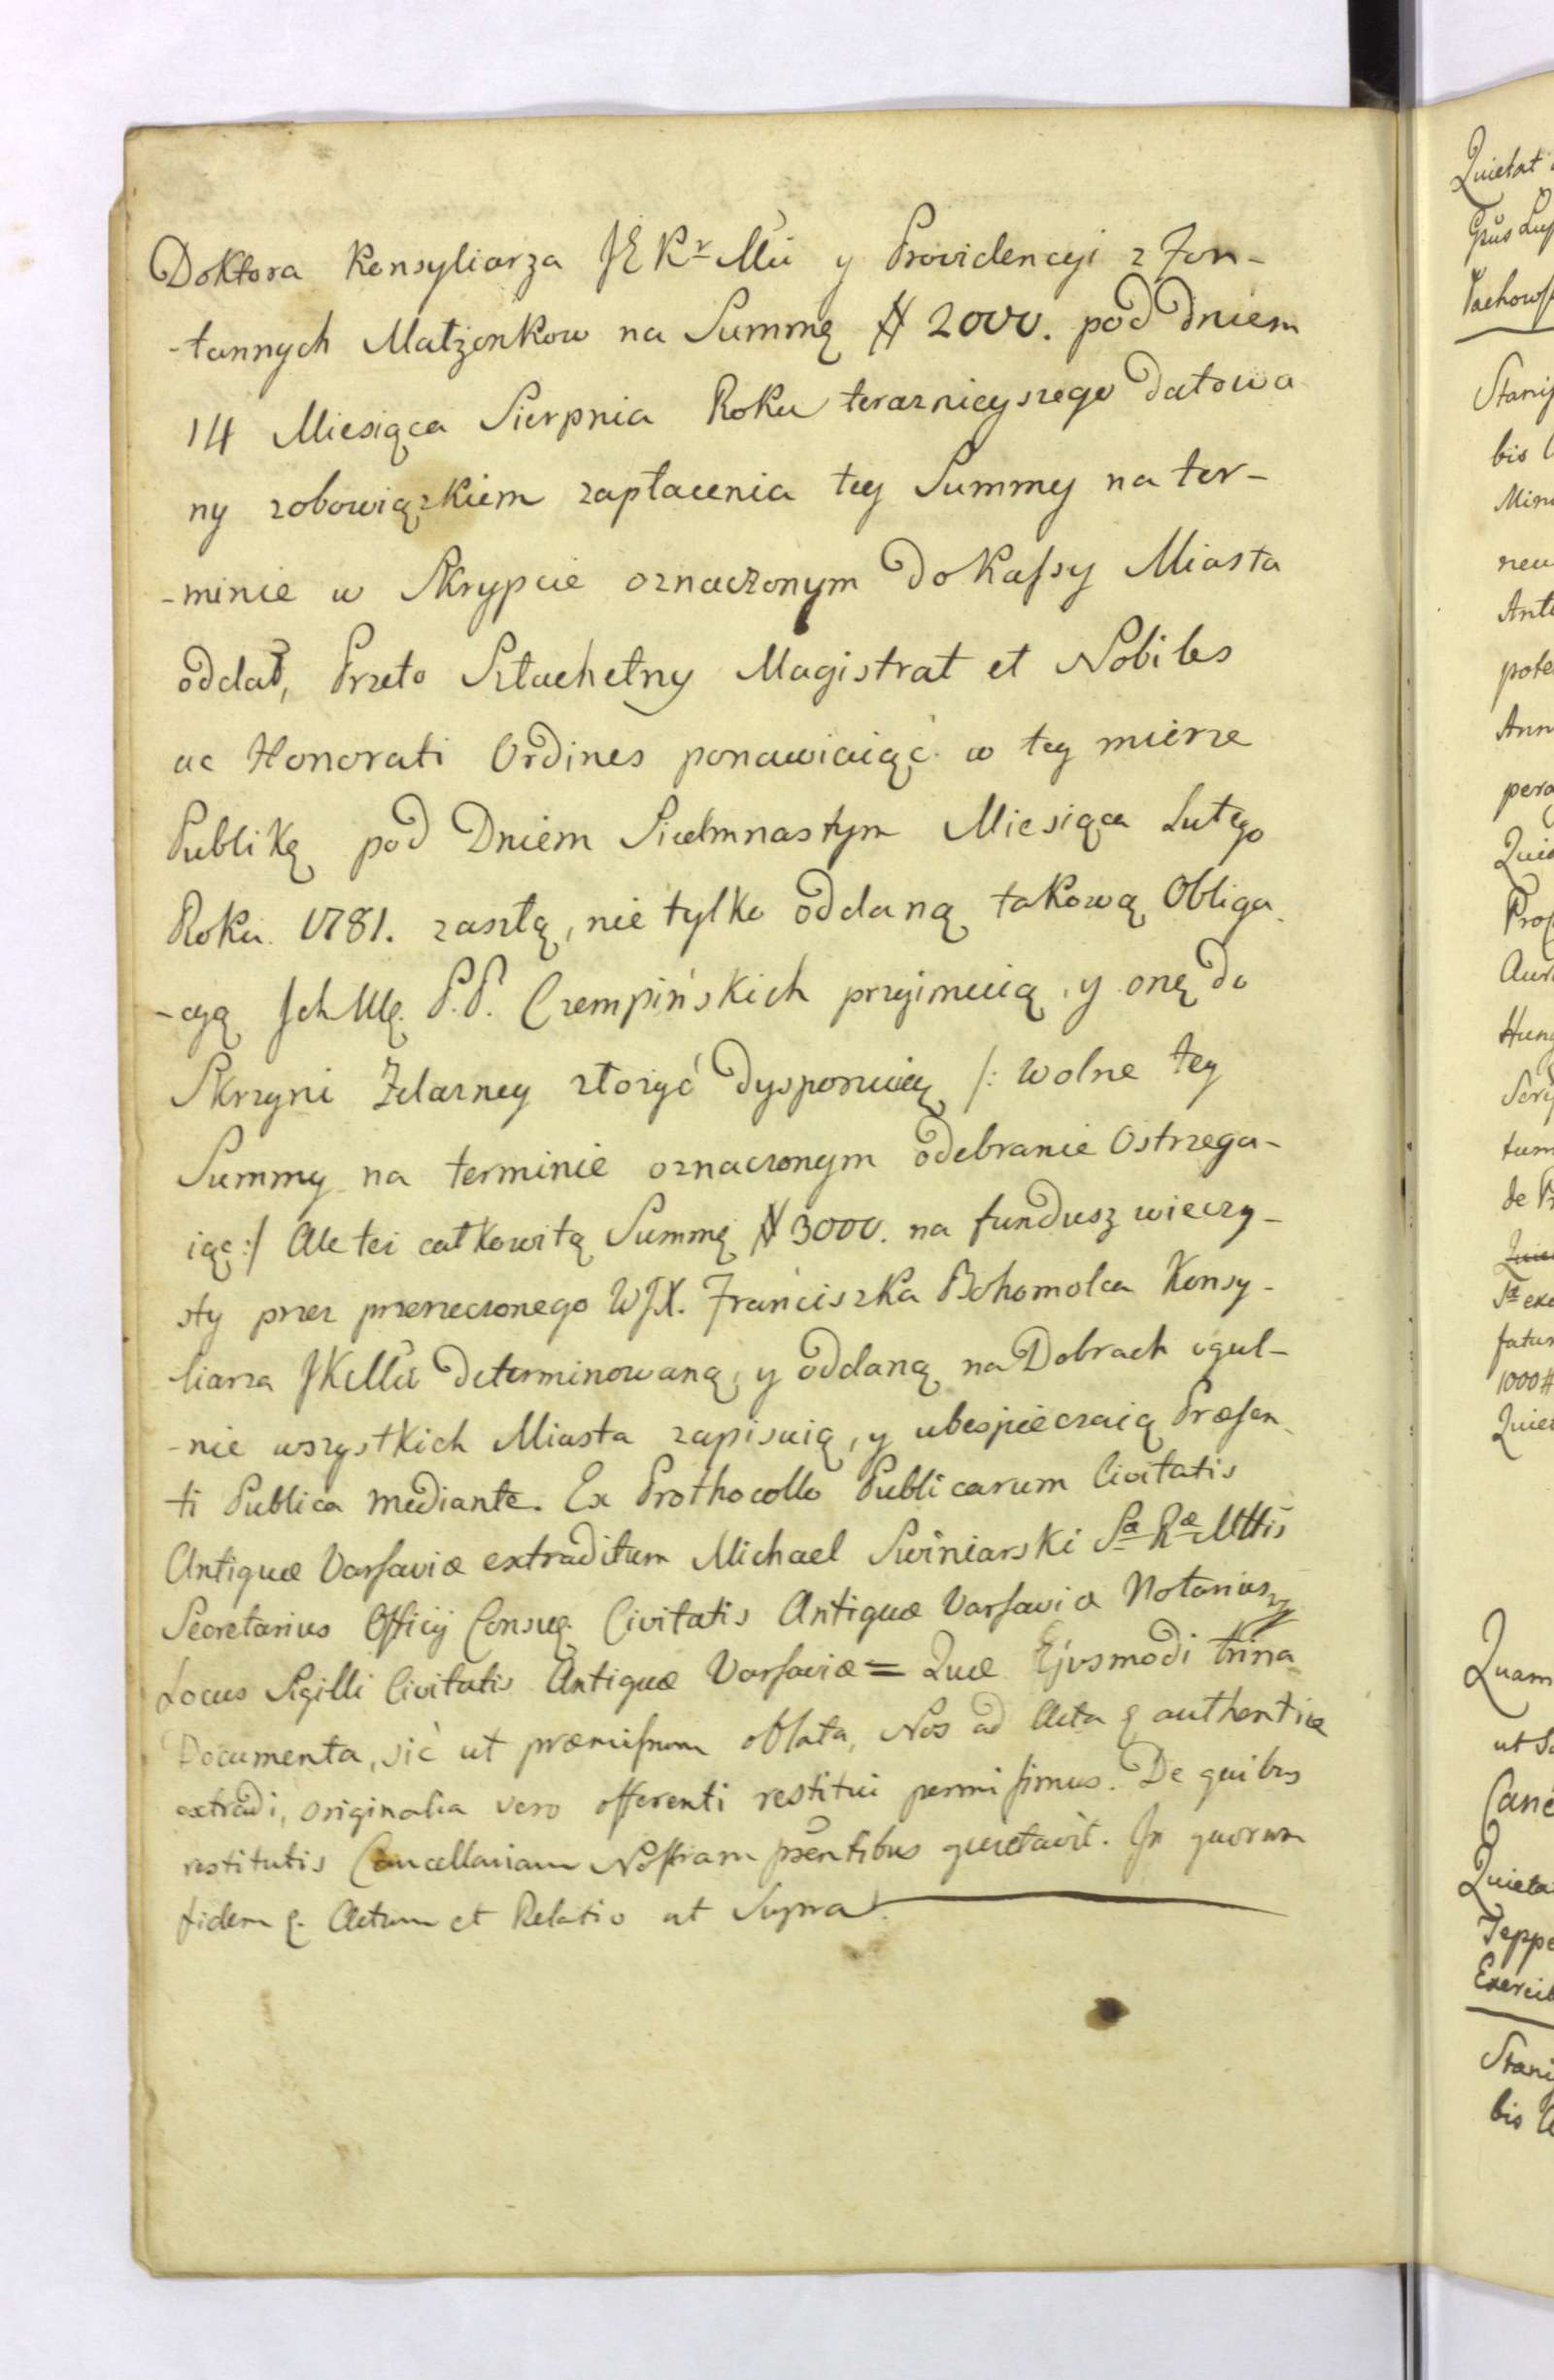 Doktora Konsyliarza JE Kr Mci y Providencyi z Fon-
-tannych Małżonkow na Summę # 2000. pod Dniem
14 Miesiąca Sierpnia Roku teraznieyszego Datowa
ny zobowiązkiem zapłacenia tey Summy na ter-
-minie w Skrypcie oznaczonym do Kassy Miasta
oddał, Przeto Szlachetny Magistrat et Nobiles
ac Honorati Ordines ponawiaiąc w tey mierze
Publikę pod Dniem Siedmnastym Miesiąca Lutego
Roku 1781. zaszłą, nie tylko oddaną takową Obliga
-cyą Ich Mę. P.P. Czempińskich przyimuią, y onę do
Skrzyni Żelazney złożyć dysponuią /: wolne tey
Summy na terminie oznaczonym odebranie Ostrzega-
iąc :/ Ale tei całkowitą Summę # 3000. na fundusz wieczy-
sty przez przerzeczonego WJX. Franciszka Bohomolca Konsy-
liarza JKMci determinowaną, y oddaną na Dobrach ogul-
-nie wszystkich Miasta zapisuią, y ubespieczaią Præsen
ti Publica mediante. Ex Prothocollo Publicarum Civitatis
Antiquæ Varsaviæ extraditum Michael Swiniarski Sæ Ræ Mttis
Secretarius Officij Consuę. Civitatis Antiquæ Varsaviæ Notarius
Locus Sigilli Civitatis Antiquæ Varsaviæ = Quæ Ejusmodi trina
Documenta, sic ut præmissum oblata, Nos ad Acta ę authentice
extradi, originalia vero offerenti restitui permisimus. De quibus
restitutis Cancellariam Nostram pñtibus quietavit. In quorum
fidem ę. Actum et Relatio ut Supra.
Quietat
Stanis
bis
Anti
pote
Ann
pera
Hung
tum
1000#
Quam
Quieta
Teppe
Stani
bis